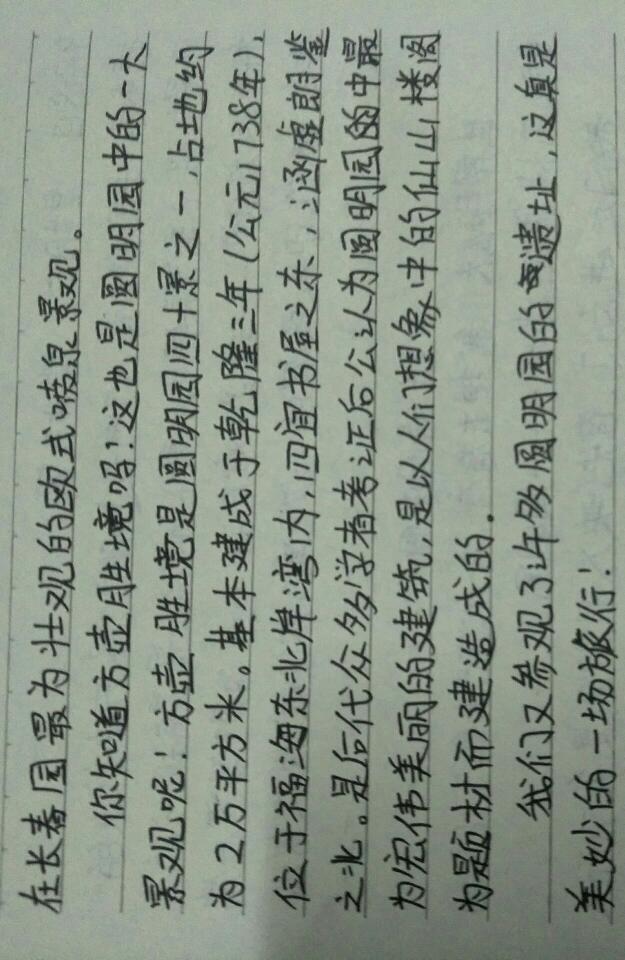 在长春园最为壮观的欧式喷泉景观。
你知道方壶胜境吗！这也是圆明园中的一大
景观呢！方壶胜境是圆明园四十景之一，占地约
为2万平方米。基本建成于乾隆三年（公元1738年），
位于福海东北岸湾内，四宜书屋之东，涵虚朗鉴
之北。是后代众多学者考证后公认为圆明园中最
为宏伟美丽的建筑，是以人们想象中的仙山楼阁
为题材而建造成的。
我们又参观了许多圆明园的遗址，这真是
美妙的一场旅行！